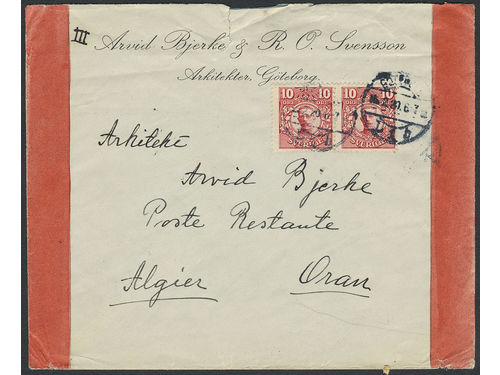 III
Arvid Bjerke & R. O. Svensson
Arkitekter, Göteborg.
10 10
ÖRE
SVERIGE
10 10
SVERIGE
Arkitekt
Arvid Bjerke
Poste Restante
Algier Oran